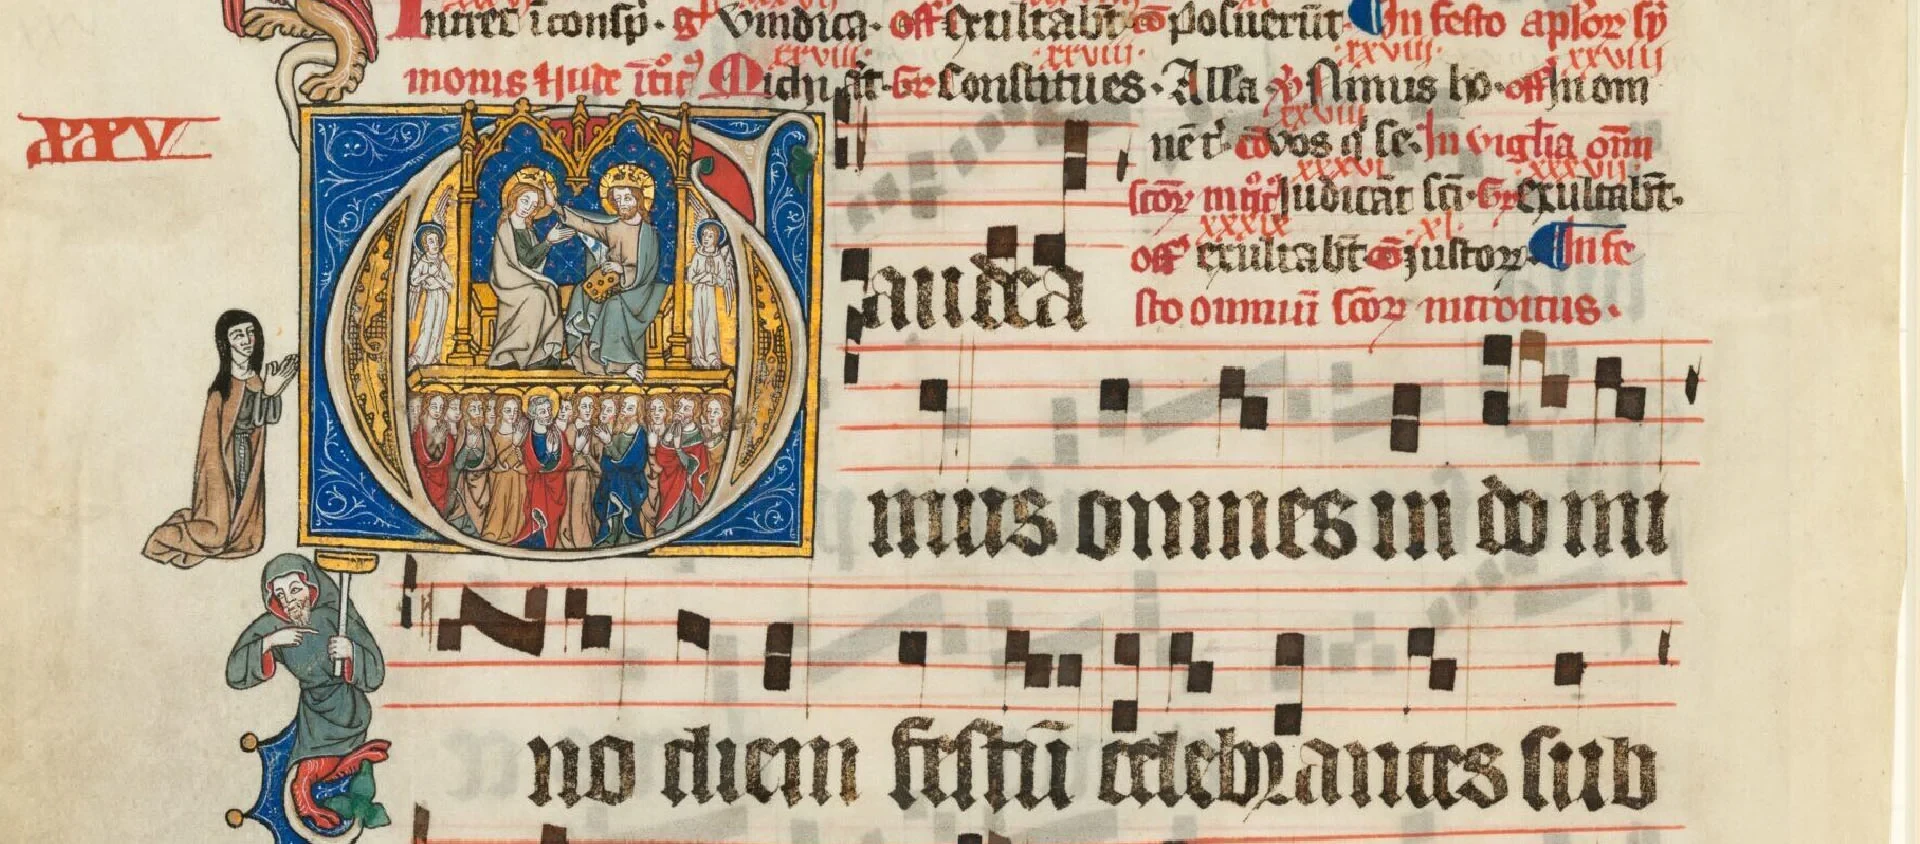 Introeō ī consp̄. gͬ Vindica. off Exultabt̄ cō Posuerūt In festo aplōr sy
xxviii xxviii xxviii xxviii
monis & Iude ītͦit Michi āt. Gr Constitues. Alla ꝟ Nimus ho. off In om
xxviii
nē t̄. cō vos q̄ se. In vigl̄ia om̄i
xxxvi xxxvii
scōr Iudicāt scī. Gr exultabt̄.
xxxix xl
off exultabt̄ cō iustor. In fe
sto omniū scōr introitus.
Gaudea
mus omnes in domi
no diem festū celebrantes sub